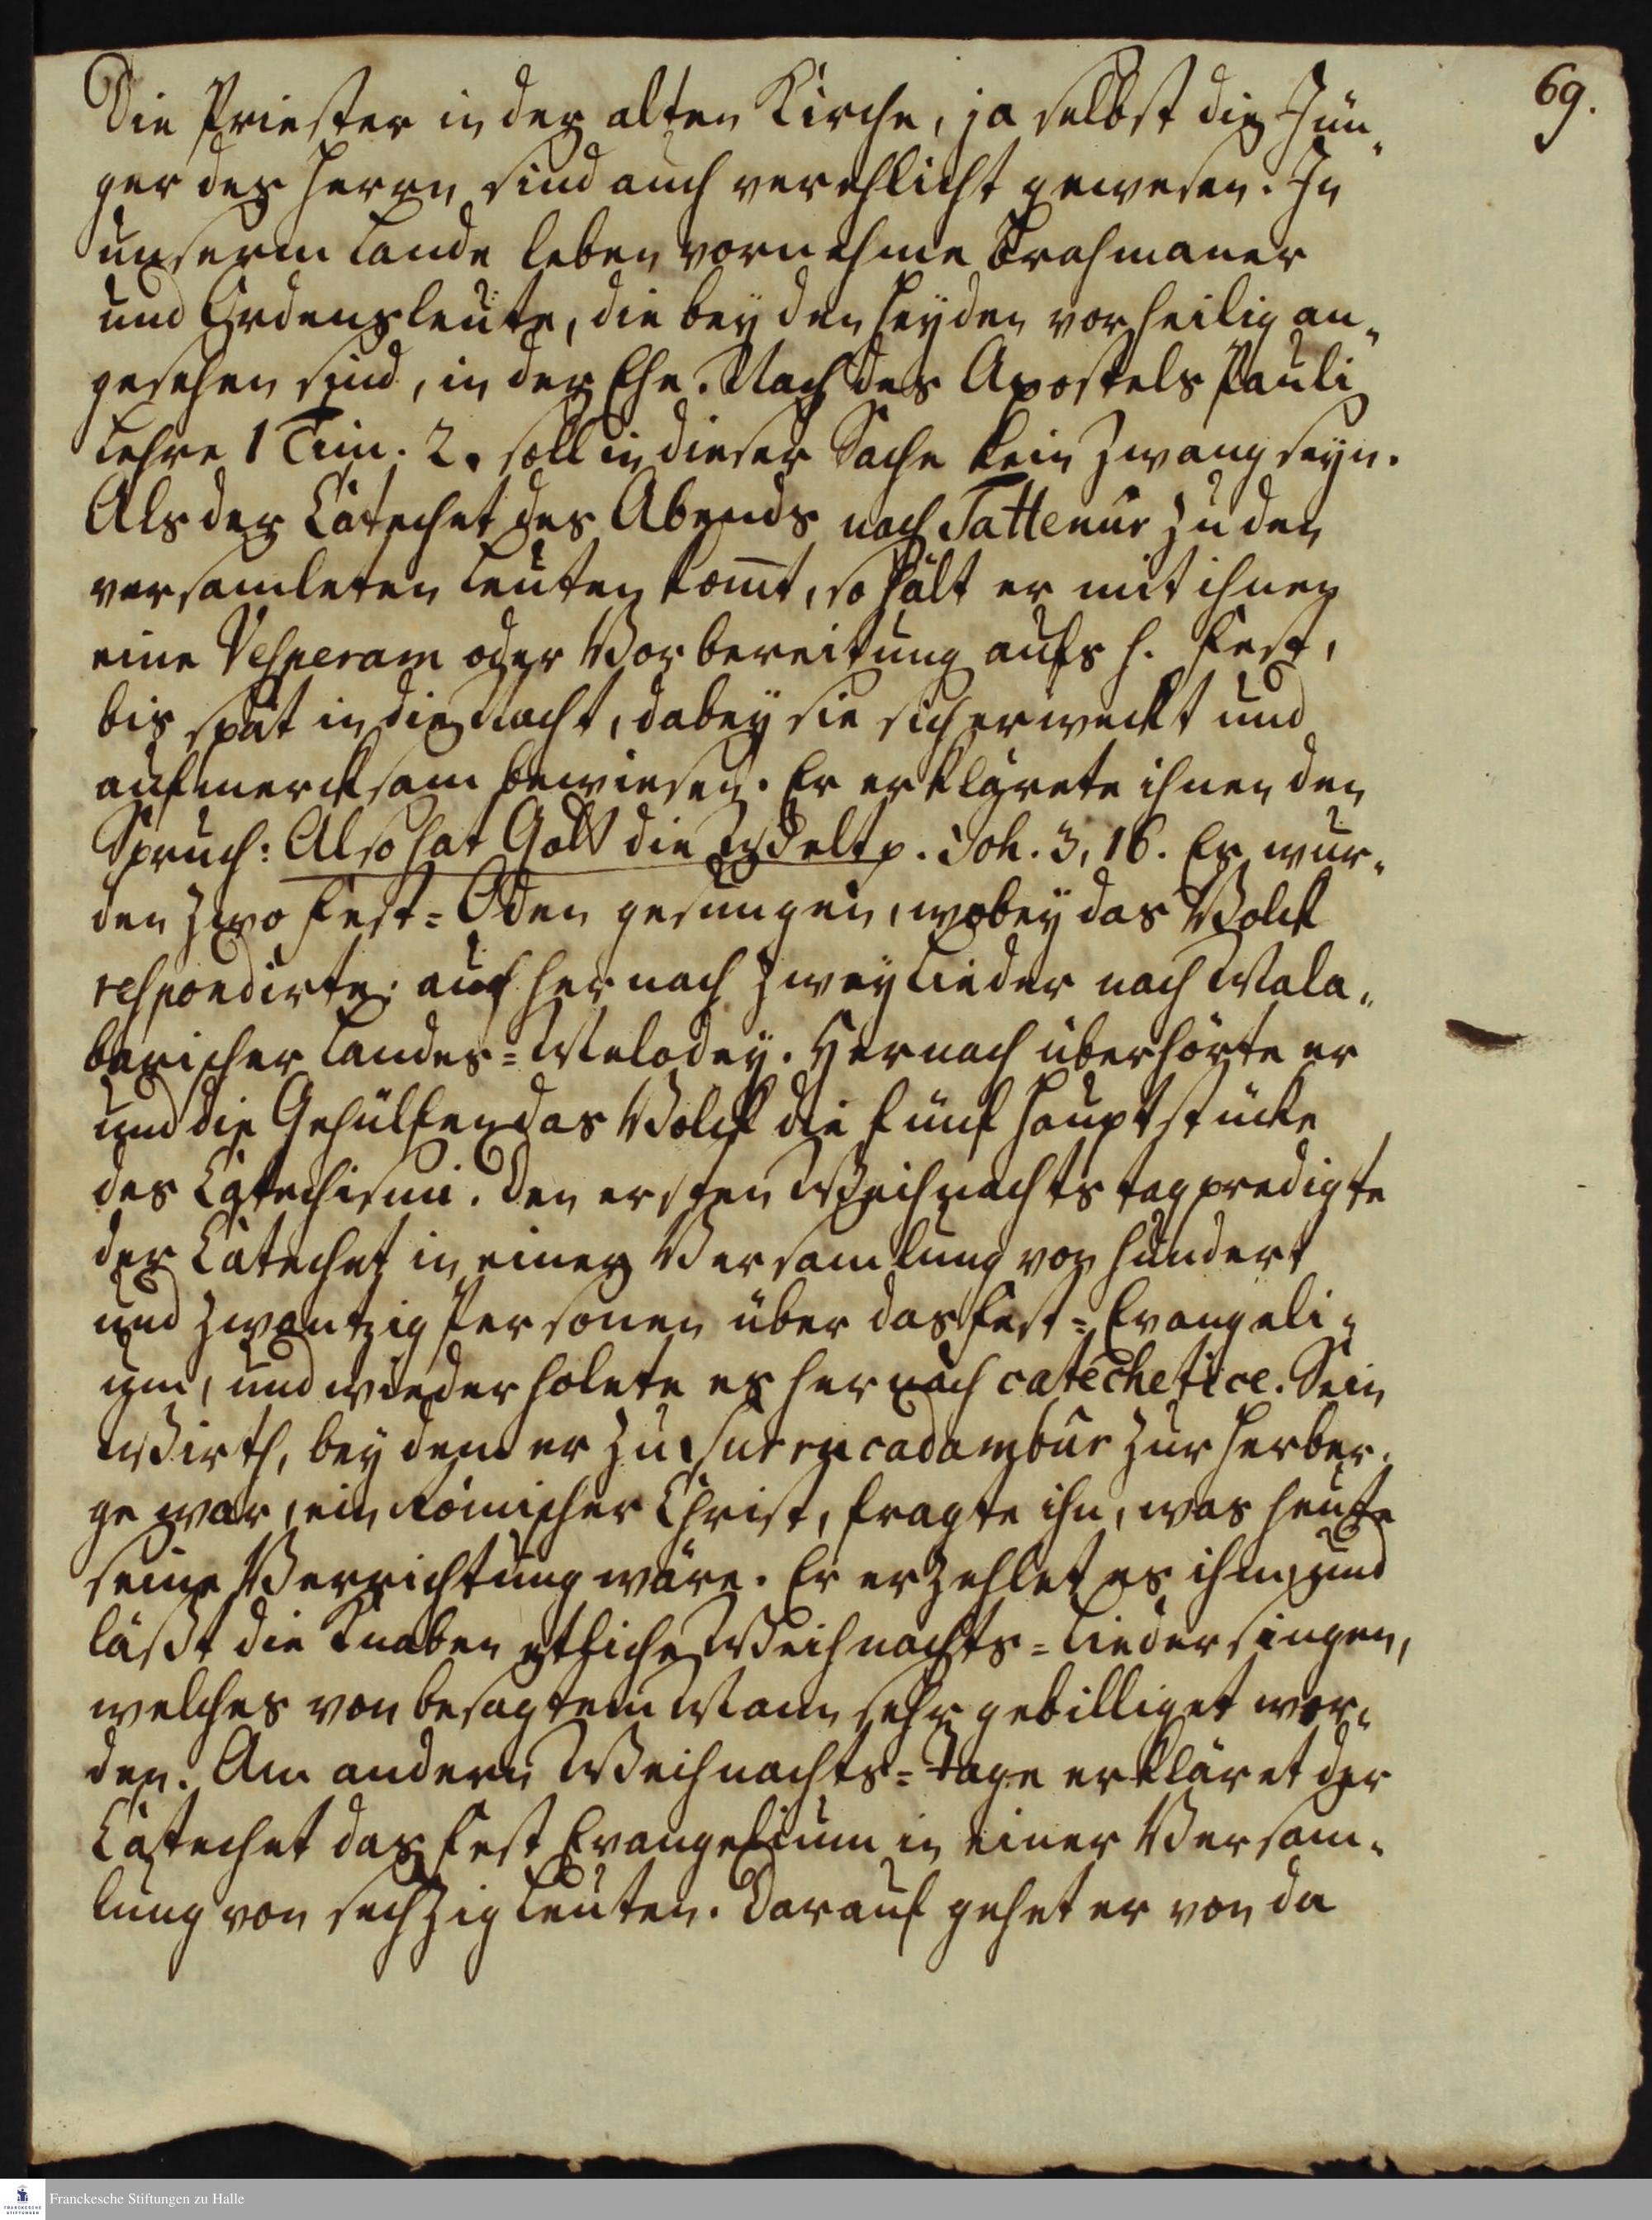 69.
Die Priester in der alten Kirche, ja selbst die Jün„
ger des Herrn sind auch verehlicht gewesen. In
unserm Lande leben vornehme Brahmaner
und Ordensleute, die bey den Heyden vor heilig an„
gesehen sind, in der Ehe. Nach des Apostels Pauli
Lehre 1 Tim. 2. soll in dieser Sache kein Zwang seyn.
Als der Catechet des Abends nach Tattenur zu den
versamleten Leuten kom̄t, so hält er mit ihnen
eine Vesperam oder Vorbereitung aufs h. Fest,
bis spät in die Nacht, dabey sie sich erweckt und
aufmercksam bewiesen. Er erklärete ihnen den
Spruch: Also hat Gott die Welt p. Joh. 3, 16. Es wur„
den zwo Fest=Oden gesungen, wobey das Volck
respondirte; auch hernach zwey Lieder nach Mala„
barischer Landes=Melodey. Hernach überhörte er
und die Gehülfen das Volck die fünf Hauptstücke
des Catechismi. Den ersten Weihnachtstag predigte
der Catechet in einer Versamlung von hundert
und zwantzig Personen über das Fest=Evangeli„
um, und wiederholete es hernach catechetice. Sein
Wirth, bey dem er zu Surencadambûr zur Herber„
ge war, ein Römischer Christ, fragte ihn, was heute
seine Verrichtung wäre. Er erzehlet es ihm, und
läßt die Knaben etliche Weihnachts=Lieder singen,
welches von besagtem Mann sehr gebilliget wor„
den. Am andern Weihnachts=Tage erkläret der
Catechet das Fest Evangelium in einer Versam„
lung von sechzig Leuten. Darauf gehet er von da
Franckesche Stiftungen zu Halle